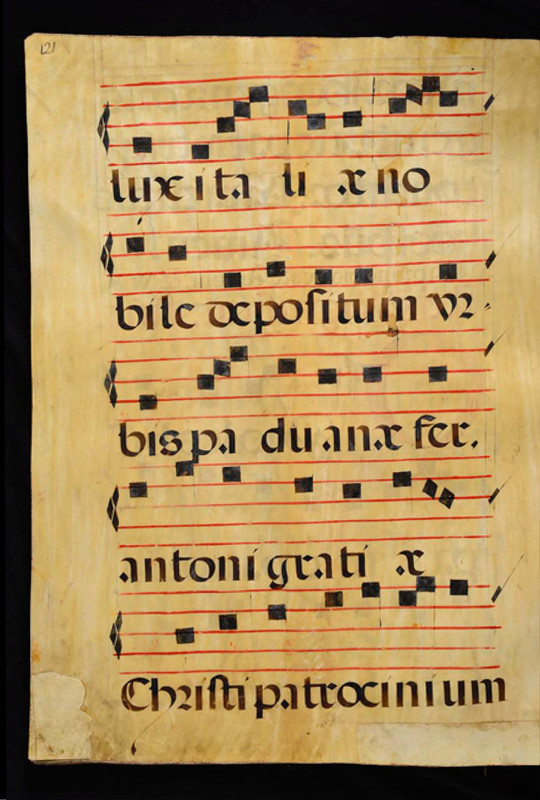 121
lux ita li æ no
bile depositum vr
bis pa du anæ fer.
antoni grati æ
Christi patrocinium